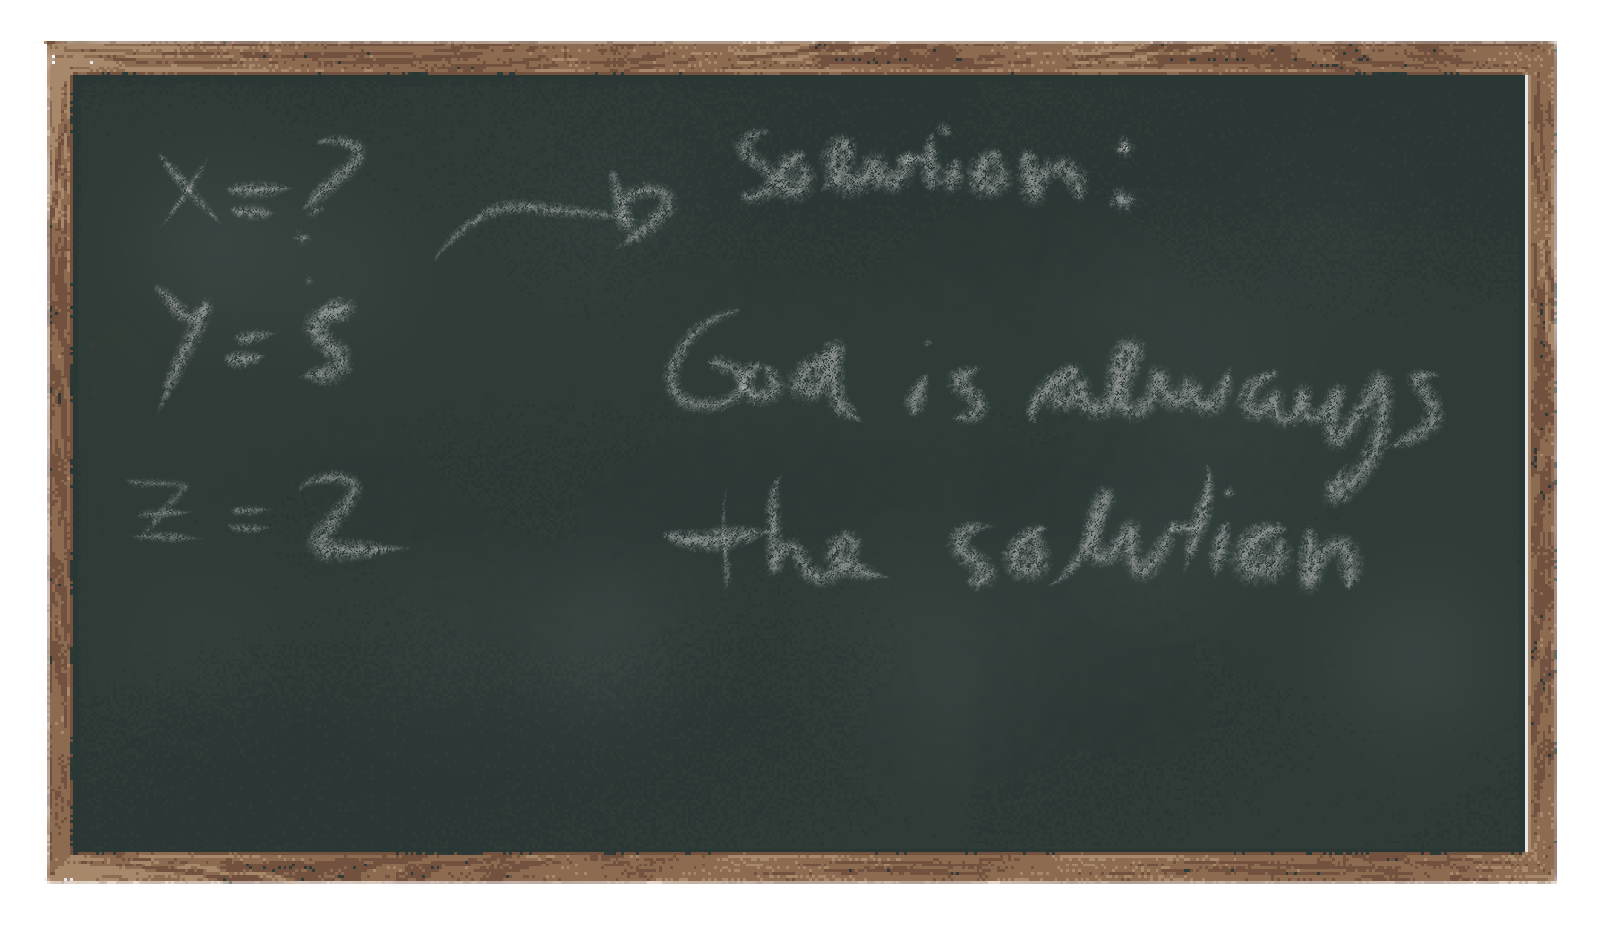 x = ?
y = 5
z = 2
Solution:
God is always
the solution